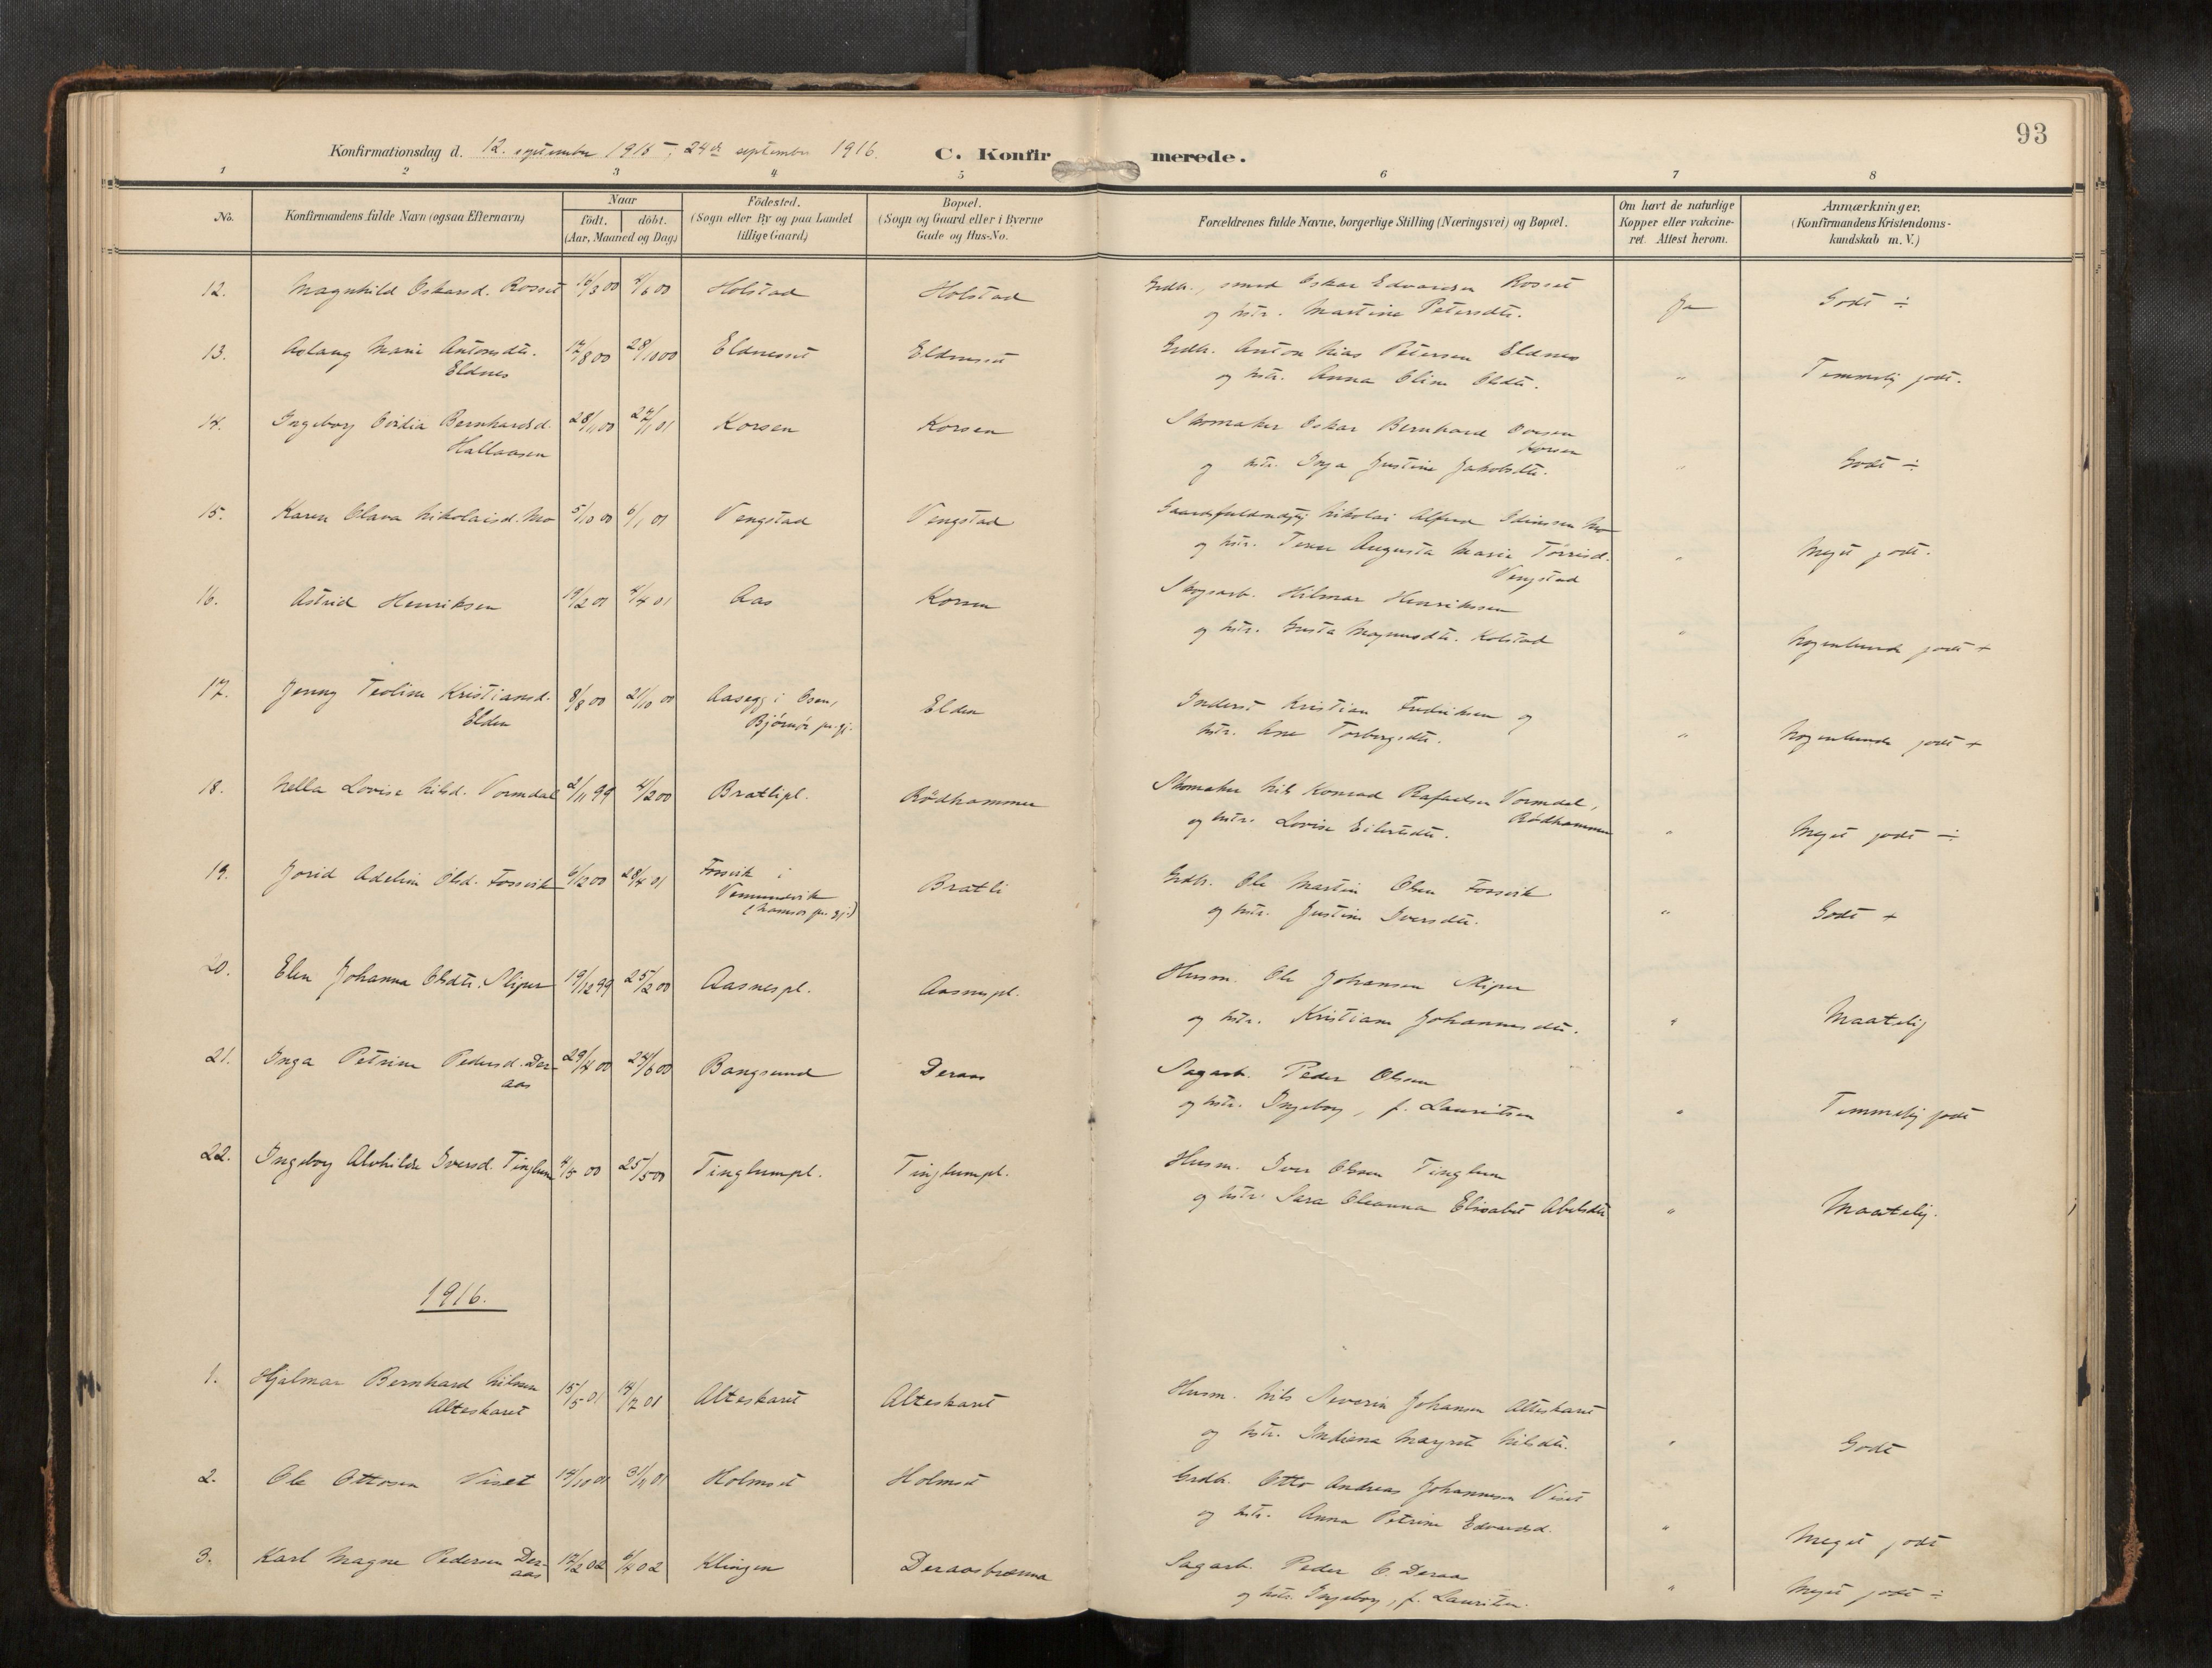 93
Konfirmationsdag d. 12. september 1915, 24de september 1916.
C. Konfirmerede.
1 2 3 4 5 6 7 8
No.
Konfirmandens fulde Navn (ogsaa Efternavn)
Naar
födt. döbt.
(Aar, Maaned og Dag)
Födested.
(Sogn eller By og paa Landet
tillige Gaard)
Bopæl.
(Sogn og Gaard eller i Byerne
Gade og Hus-No.
Forældrenes fulde Navne, borgerlige Stilling (Næringsvei) og Bopæl.
Om havt de naturlige
Kopper eller vakcine-
ret. Attest herom.
Anmærkninger.
(Konfirmandens Kristendoms-
kundskab m. V.)
12. Magnhild Oskarsd. Rosset 16/3 00 4/6 00 Holstad Holstad Grdb., smed Oskar Edvardsen Rosset Ja Godt ÷
og hstr. Martine Petersdtr.
13. Aslaug Marie Antonsdtr. 17/8 00 28/10 00 Eldnesset Eldnesset Grdb. Anton Nias Petersen Eldnes " Temmelig godt.
Eldnes
og hstr. Anna Oline Olsdtr.
14. Ingeborg Ovidia Bernhardsd. 28/11 00 27/1 01 Korsen Korsen Skomaker Oskar Bernhard Ovesen " Godt ÷
Hallaasen
Korsen
og hstr. Inga Justine Jakobsdtr.
15. Karen Olava Nikolaisd. Mo 5/10 00 6/1 01 Vengstad Vengstad Gaardsfuldmægtig Nikolai Alfred Idinssen Mo " Meget godt.
og hstr. Tema Augusta Marie Torrisd.
Vengstad
16. Astrid Henriksen 19/2 01 4/4 01 Aas Korsen Skogsarb. Hilmar Henrikssen " Nogenlunde godt +
og hstr. Gusta Magnusdtr. Kolstad
17. Jenny Teoline Kristiansd. 8/8 00 21/10 00 Aasegg i Osen, Elden Inderst Kristian Fredriksen og " Nogenlunde godt +
Elden
Bjørnør pr.gj.
hstr. Ane Torbergsdtr.
18. Nella Lovise Nilsd. Vormdal 2/11 99 4/2 00 Bratlipl. Rødhammer Skomaker Nils Konrad Rafaelsen Vormdal, " Meget godt ÷
Rødhammer
og hstr. Lovise Eilertsdtr.
19. Jorid Adeline Olsd. Fossvik 6/12 00 28/4 01 Fossvik i Bratli Grdb. Ole Martin Olsen Fossvik " Godt +
Vemundvik
(Namsos pr.gj.)
og hstr. Justine Iversdtr.
20. Elen Johanna Olsdtr. Sliper 19/12 99 25/2 00 Aasnespl. Aasnespl. Husm. Ole Johansen Sliper " Maatelig
og hstr. Kristiane Johannesdtr.
21. Inga Petrine Pedersd. Der- 29/4 00 24/6 00 Bangsund Deraas Sagarb. Peder Olsen " Temmelig godt
aas
og hstr. Ingeborg, f. Lauritsen
22. Ingeborg Alvhilde Iversd. Tinglum 4/5 00 25/5 00 Tinglumpl. Tinglumpl. Husm. Iver Olsen Tinglum " Maatelig.
og hstr. Sara Oleanna Elisabet Abelsdtr
1916.
1. Hjalmar Bernhard Nilsen 15/5 01 14/7 01 Alteskaret Alteskaret Husm. Nils Severin Johansen Alteskaret " Godt
Alteskaret
og hstr. Indiana Margrete Nilsdtr.
2. Ole Ottosen Viset 14/10 01 31/11 01 Holmset Holmset Grdb. Otto Andreas Johannesen Viset " Meget godt
og hstr. Anna Petrine Edvardsd.
3. Karl Magne Pedersen Der- 17/2 02 6/4 02 Klingen Deraasbrænna Sagarb. Peder O. Deraas " Meget godt ÷
aas
og hstr. Ingeborg, f. Lauritsen.